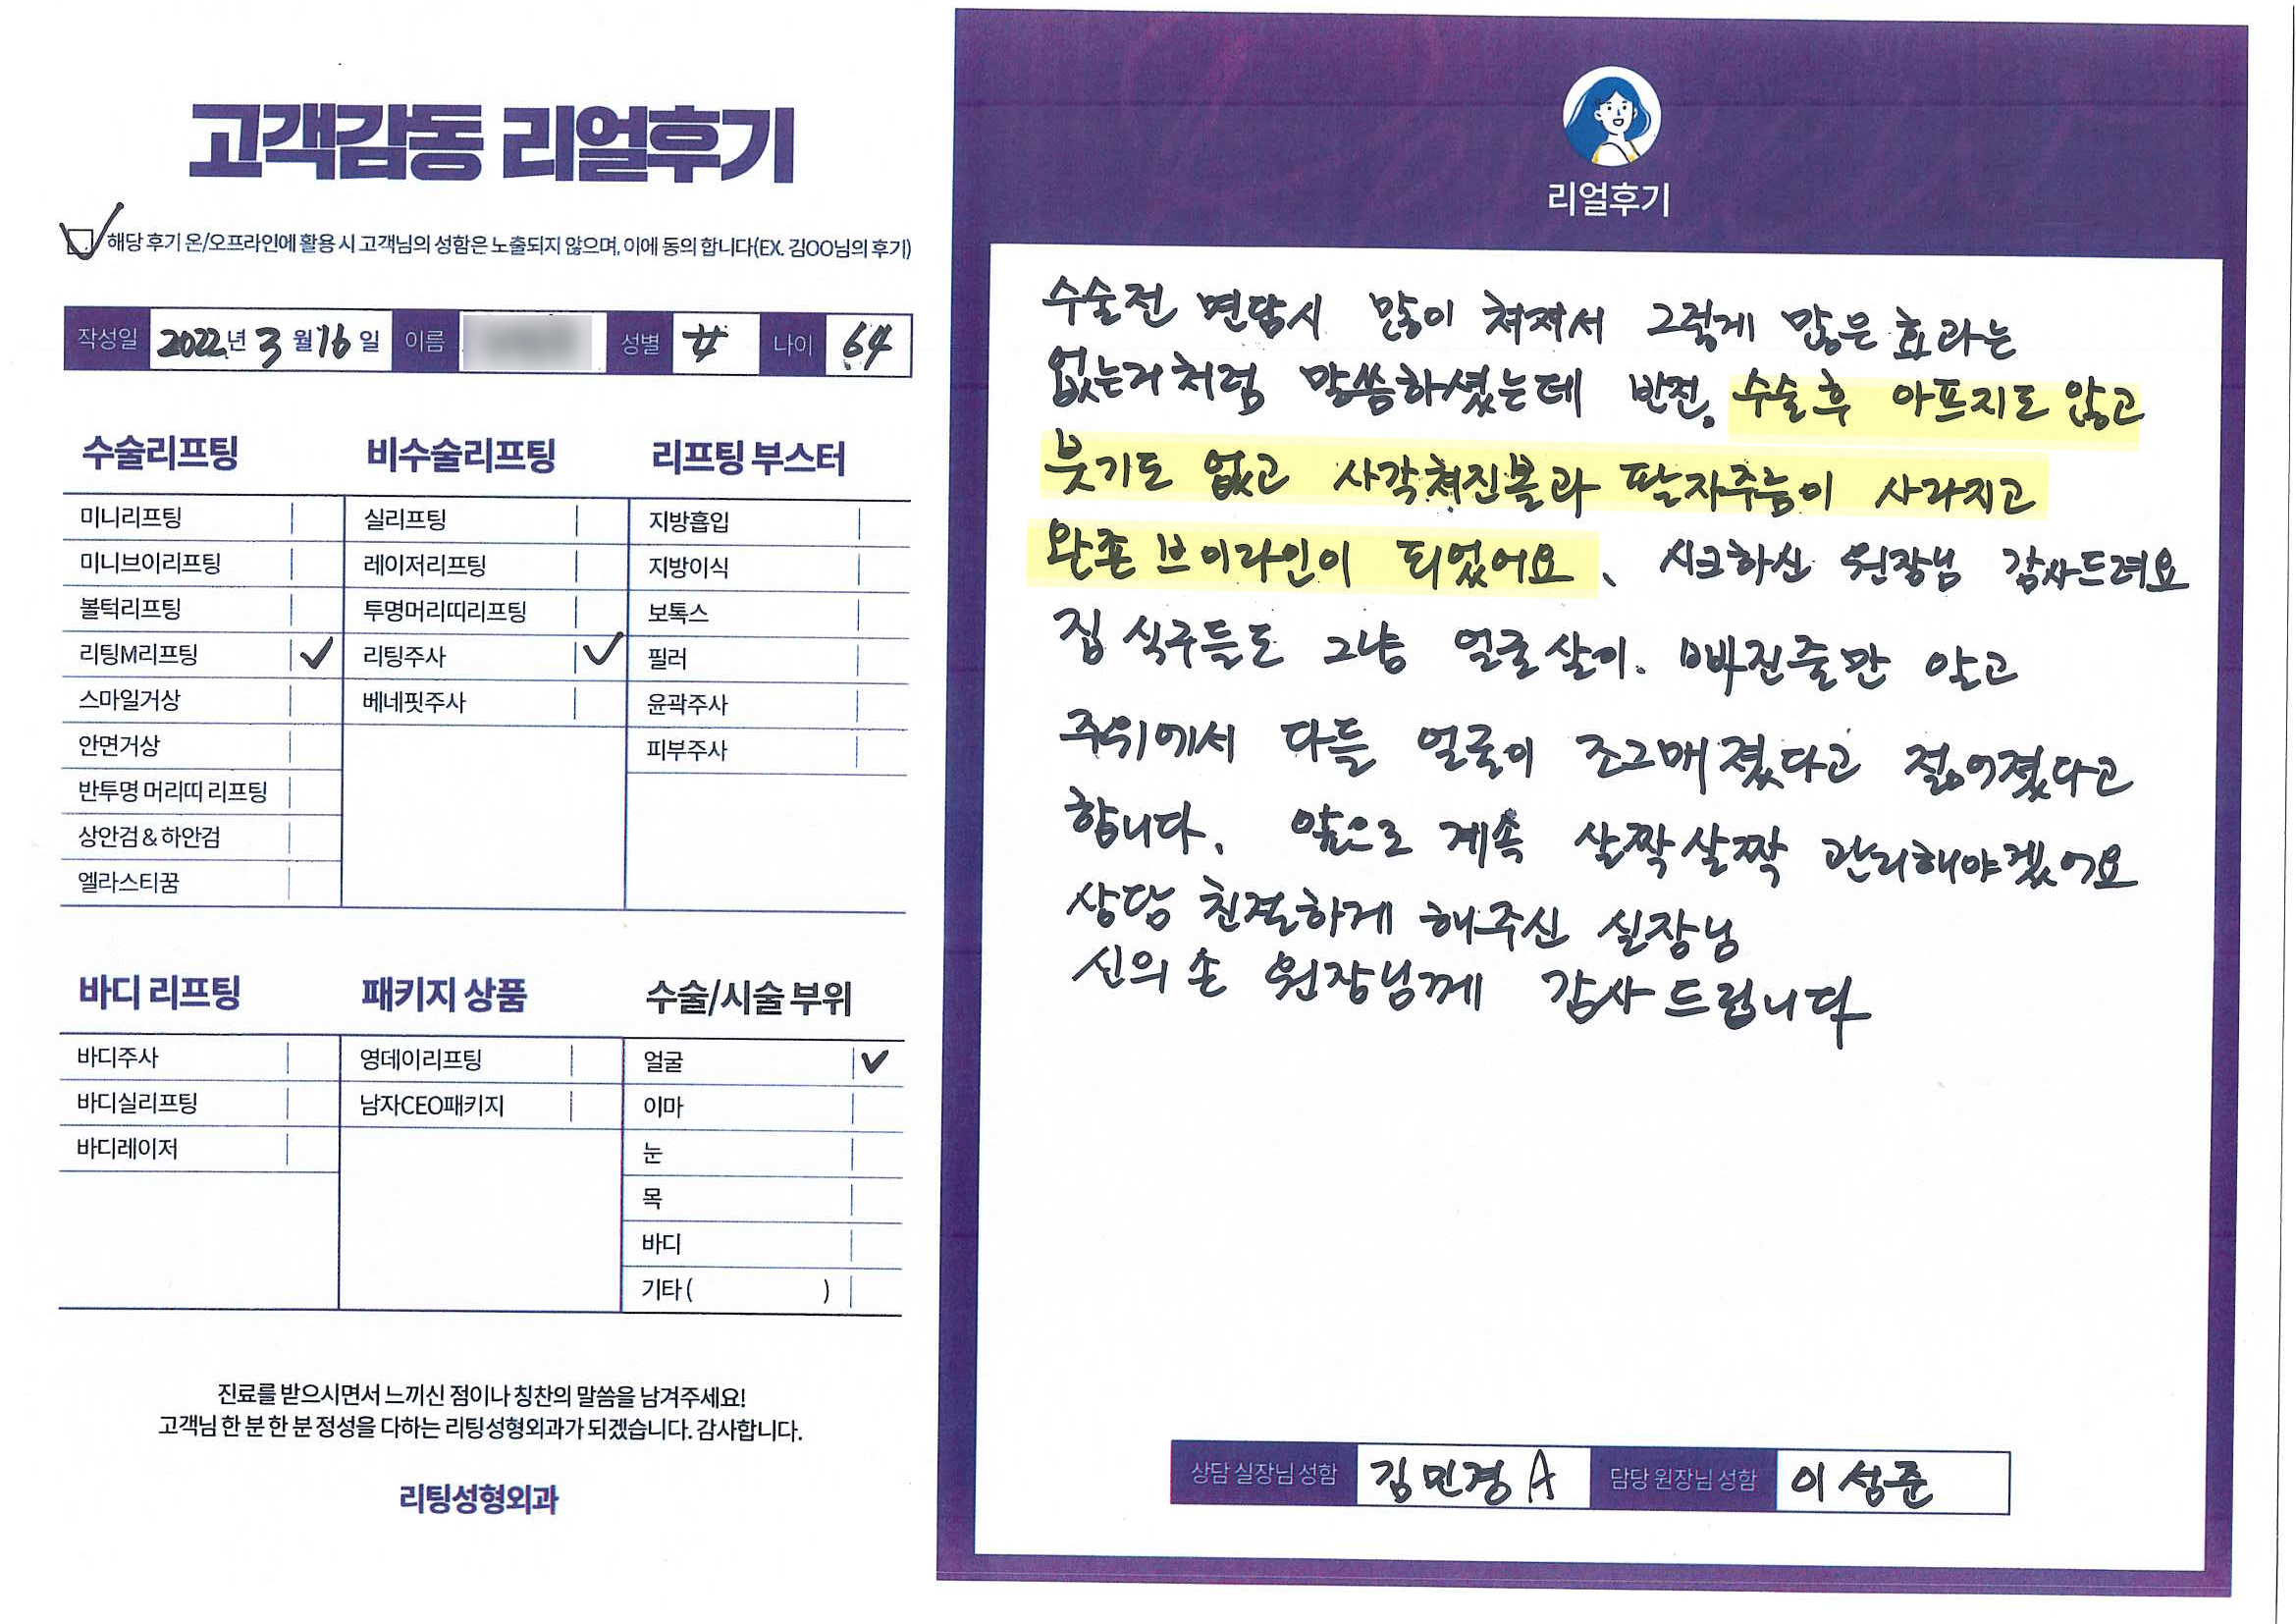 고객감동 리얼후기
해당 후기 온/오프라인에 활용 시 고객님의 성함은 노출되지 않으며, 이에 동의 합니다(EX. 김OO님의 후기)
작성일 2022년 3월 16일 이름 성별 女 나이 64
수술리프팅
미니리프팅
미니브이리프팅
볼턱리프팅
리팅M리프팅 ✓
스마일거상
안면거상
반투명 머리띠 리프팅
상안검 & 하안검
엘라스티꿈
비수술리프팅
실리프팅
레이저리프팅
투명머리띠리프팅
리팅주사 ✓
베네핏주사
리프팅 부스터
지방흡입
지방이식
보톡스
필러
윤곽주사
피부주사
바디 리프팅
바디주사
바디실리프팅
바디레이저
패키지 상품
영데이리프팅
남자CEO패키지
수술/시술 부위
얼굴 ✓
이마
눈
목
바디
기타 ( )
진료를 받으시면서 느끼신 점이나 칭찬의 말씀을 남겨주세요!
고객님 한 분 한 분 정성을 다하는 리팅성형외과가 되겠습니다. 감사합니다.
리팅성형외과
리얼후기
수술전 면담시 많이 쳐져서 그렇게 많은 효과는
없는거처럼 말씀하셨는데 반전. 수술후 아프지도 않고
붓기도 없고 사각쳐진볼과 팔자주름이 사라지고
완존 브이라인이 되었어요. 시크하신 원장님 감사드려요
집 식구들도 그냥 얼굴살이. 빠진줄만 알고
주위에서 다들 얼굴이 조그매졌다고 젊어졌다고
합니다. 앞으로 계속 살짝살짝 관리해야겠어요
상담 친절하게 해주신 실장님
신의 손 원장님께 감사드립니다
상담 실장님 성함 김민경A 담당 원장님 성함 이성준